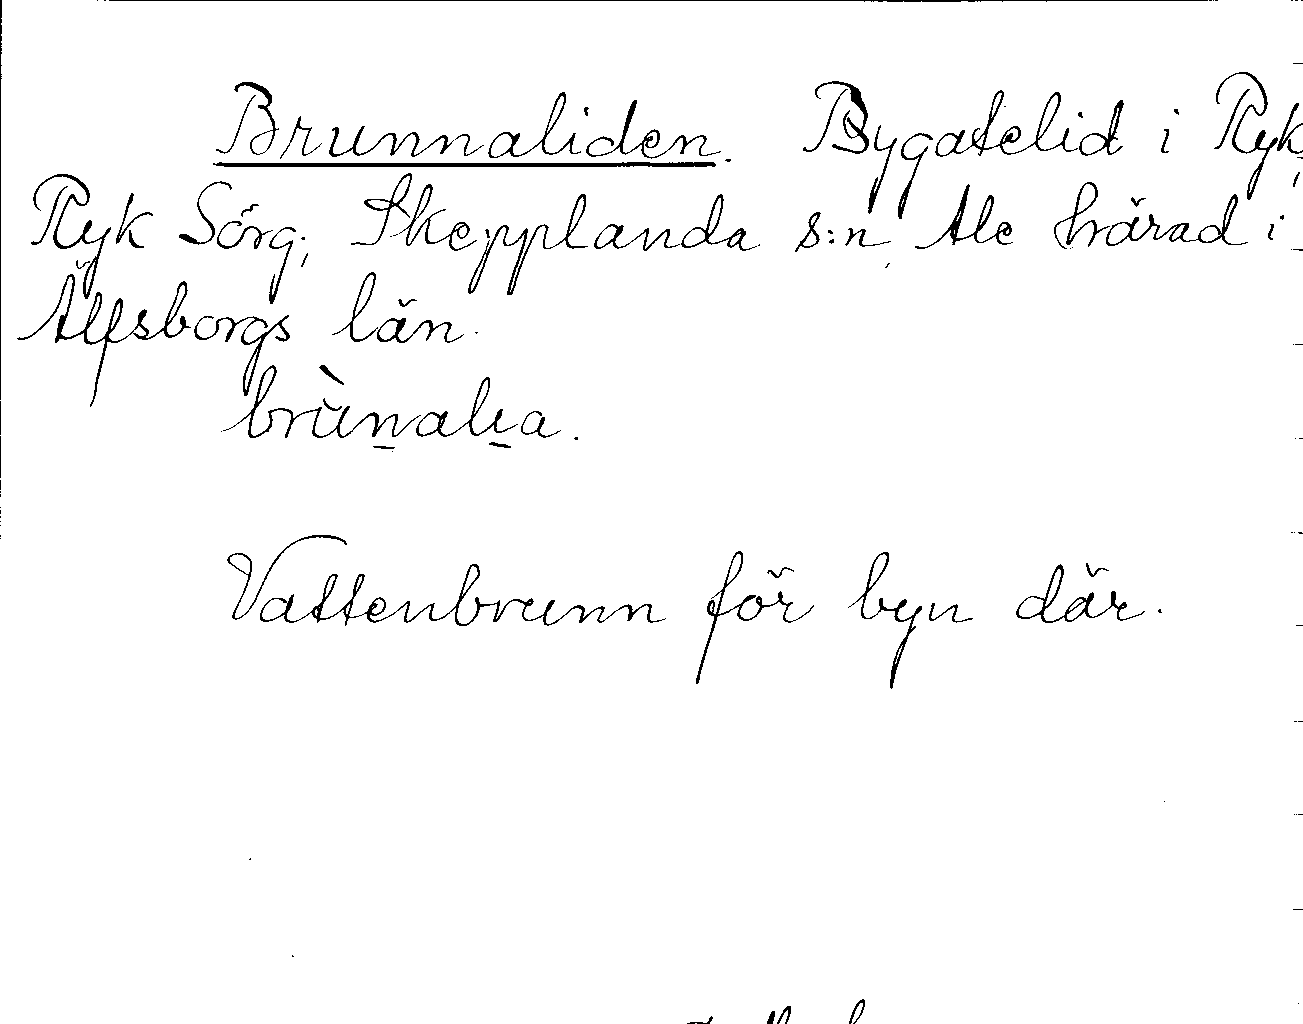 Brunnaliden. Bygatelid i Ryk,
Ryk Sörg; Skepplanda s:n, Ale härad i
Älfsborgs län.
brùn̠alı̠a.
Vattenbrunn för byn där.